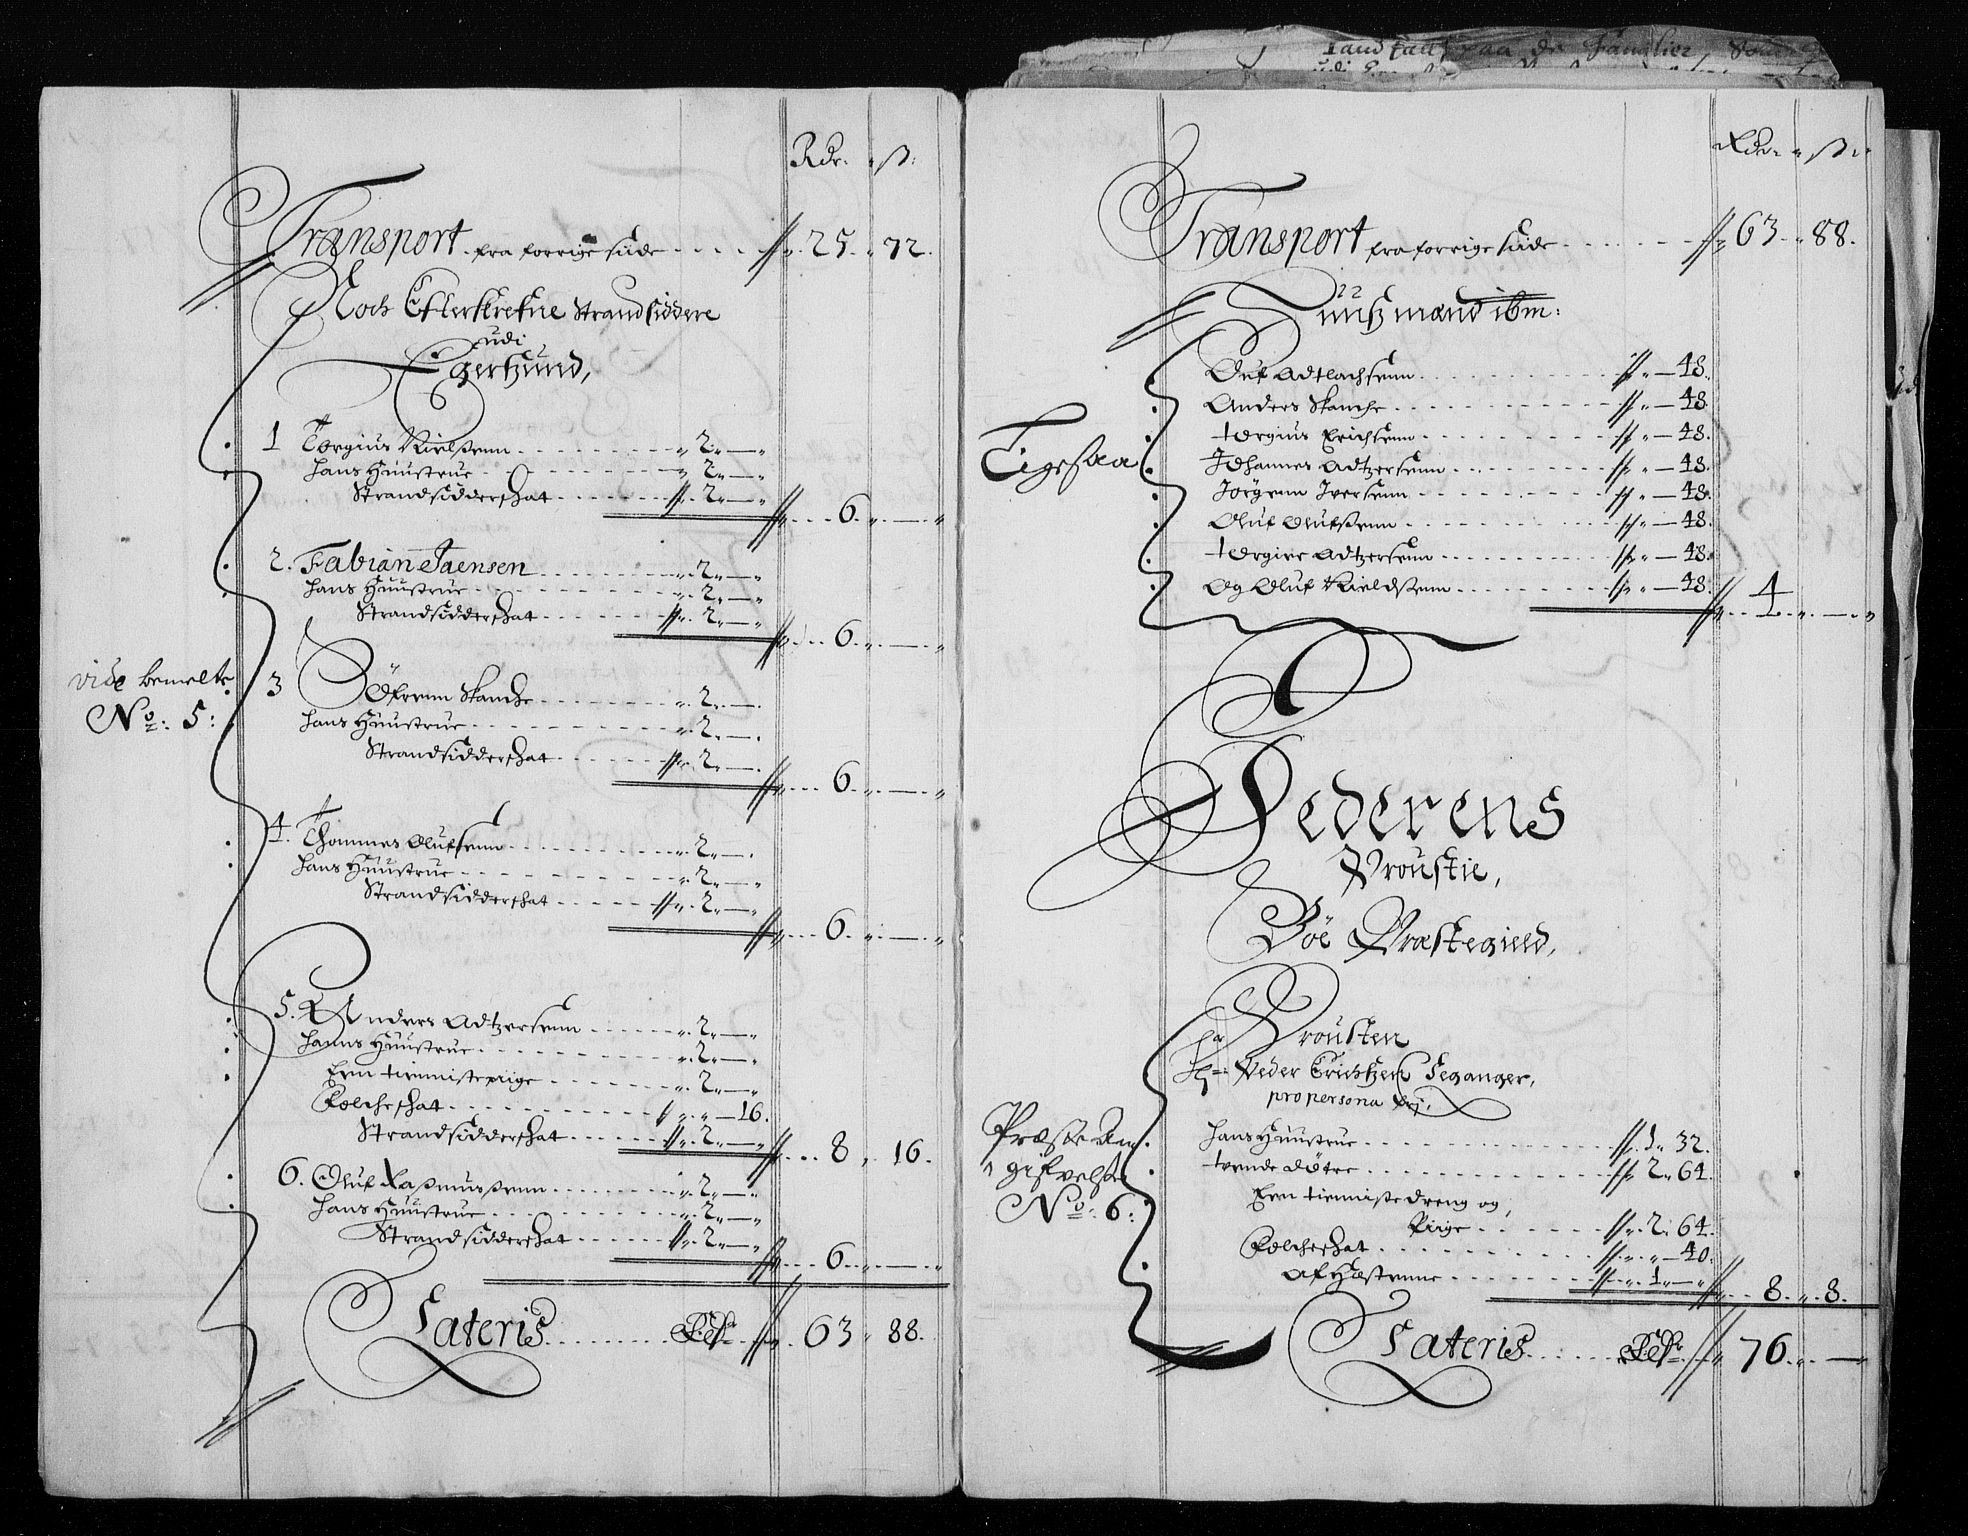 Rdr. ß:
Transport fra forrige siide 25 72.
Noch Efterskrefne Strandsiddere
udi
Egersund,
1 Torgius Nielssenn 2
hans Huustrue 2
Strandsidderschat 2
6
2. Fabian Jaensen 2
hans Huustrue 2
Strandsidderschat 2
6
vide bemelte
No: 5:
3 Søfrenn Skanche 2
hans Huustrue 2
Strandsidderschat 2
6
4. Thommes Olufsenn 2
hans Huustrue 2
Strandsidderschat 2
6
5. Anders Adtzersenn 2
hanns Huustrue 2
Een tienniste piige 2
Folcheschat 16.
Strandsidderschat 2
8 16.
6. Oluf Rasmussenn 2
hans Huustrue 2
Strandsidderschat 2
6
Lateris 63 88.
Rdr. ß:
Transport fra forrige siide 63 88.
Huußmænd ibm:
Tigesaa
Oluf Adtlachsenn 48.
Anders Skanche 48.
Tørgius Erichsenn 48.
Johannes Adtzersenn 48.
Jørgenn Iversenn 48.
Oluf Olufssenn 48.
Adtzersenn 48.
Og Oluf Kieldssenn 48.
4
Jederens
Proustie,
Böe Præstegield,
Prousten
Hr: Peder Erichtzen Leganger,
pro persona frj.
Præste An-
gifvelse
No: 6:
hans Huustrue 1 32.
tvende døtre 2 64.
Een tienniste dreng og,
Piige 2 64.
Folcheschat 40.
Af Hæstenne 1
8 8.
Lateris 76